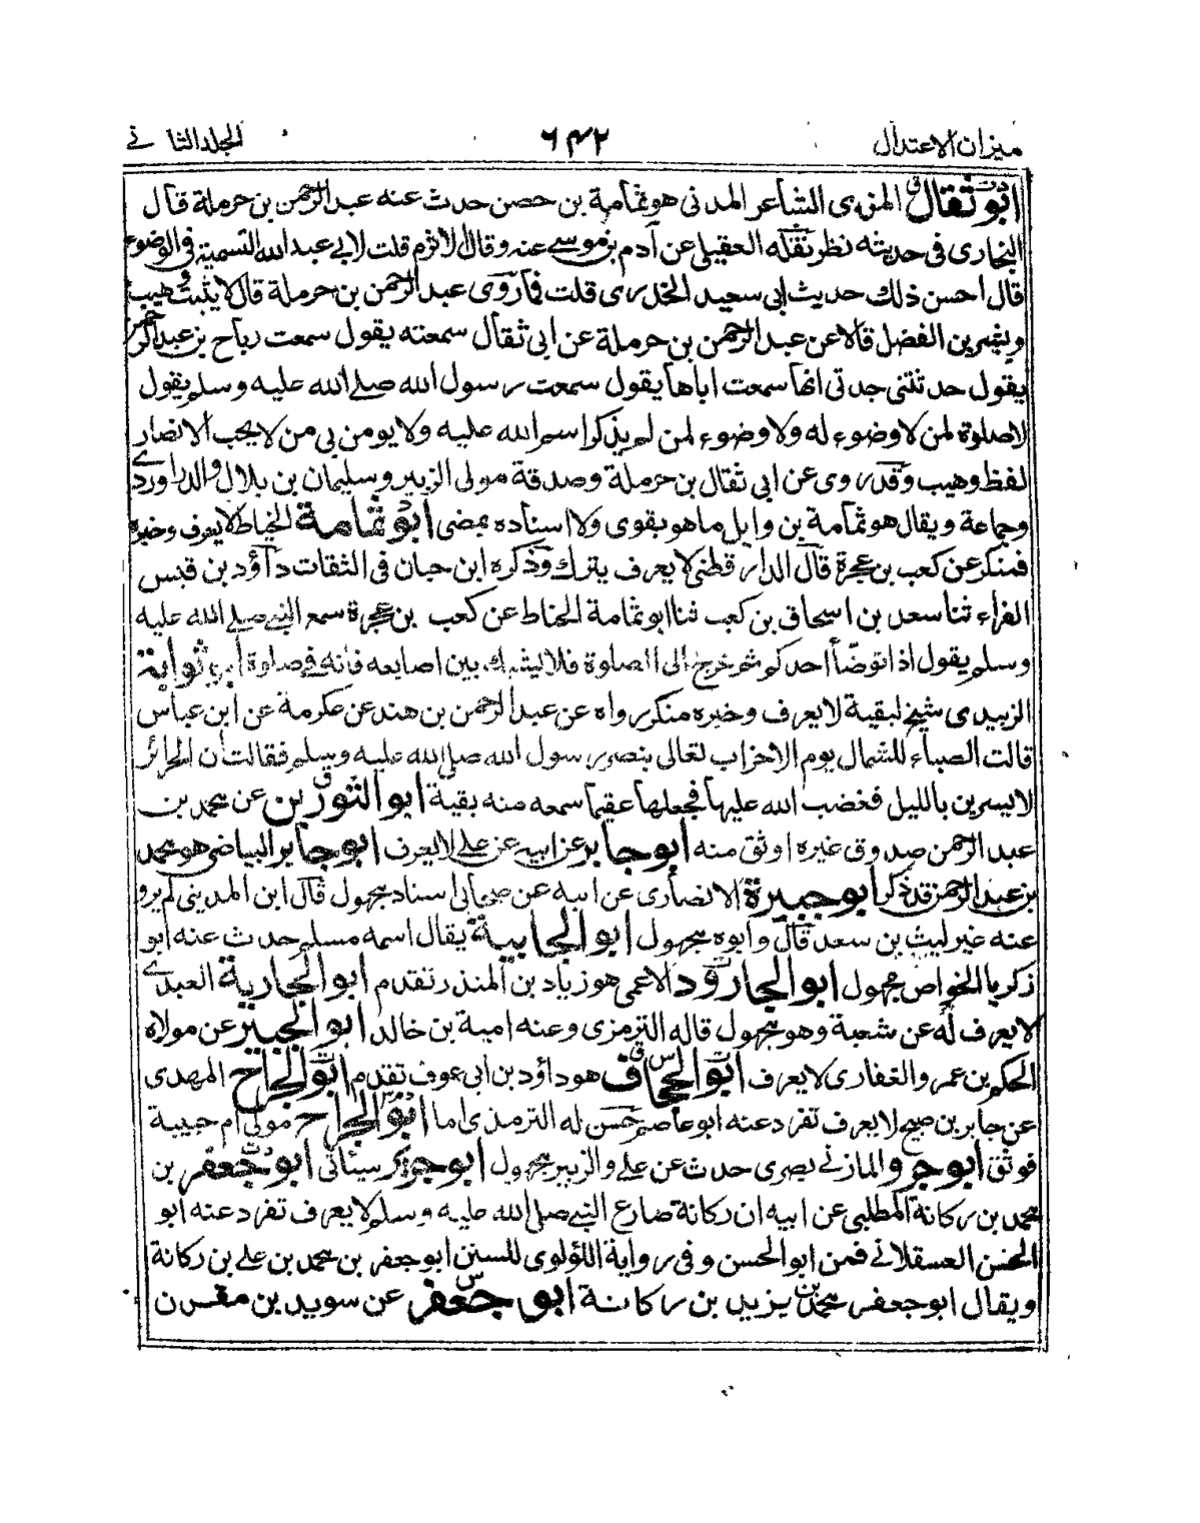 ميزان الاعتدال ٦٤٢ المجلد الثاني
ابو ثقال المزى الشاعر المدنى هو ثمامة بن حصن حدث عنه عبد الرحمن بن حرملة قال
البخارى فى حديثه نظر نقله العقيلى عن آدم بن موسے عنه وقال الاثرم قلت لابے عبد الله التسمية فى الوضوء
قال احسن ذلك حديث ابى سعيد الخدرى قلت فما روى عبد الرحمن بن حرملة قال لا يثبت وهيب
وبشر بن الفضل قالا عن عبد الرحمن بن حرملة عن ابى ثقال سمعته يقول سمعت رباح بن عبد الرحمن
يقول حدثتنى جدتى انها سمعت اباها يقول سمعت رسول الله صلے الله عليه وسلم يقول
لا صلوة لمن لا وضوء له ولا وضوء لمن لم يذكر اسم الله عليه ولا يومن بى من لا يحب الانصار
لفظ وهيب وقد روى عن ابى ثقال بن حرملة وصدقة مولى الزبير وسليمان بن بلال والدراوردے
وجماعة ويقال هو ثمامة بن وايل ما هو بقوى ولا اسناده بمضى ابو ثمامة الخياط لا يعرف وخبره
فمنكر عن كعب بن عجرة قال الدارقطنى لا يعرف يترك وذكره ابن حبان فى الثقات داؤد بن قيس
الفراء ثنا سعد بن اسحاق بن كعب ثنا ابو ثمامة الخناط عن كعب بن عجرة سمع النبے صلے الله عليه
وسلم يقول اذا توضأ احدكم ثم خرج الى الصلوة فلا يشبك بين اصابعه فانه فى صلوة ابو ثوابة
الزبيدى شيخ لبقية لا يعرف وخبره منكر رواه عن عبد الرحمن بن هند عن عكرمة عن ابن عباس
قالت الصباء للشمال يوم الاحزاب تعالى ننصر رسول الله صلى الله عليه وسلم فقالت ان الحرائر
لا يسرين بالليل فغضب الله عليها فجعلها عقيما سمعه منه بقية ابو الثورين عن محمد بن
عبد الرحمن صدوق غيره اوثق منه ابو جابر عن ابيه عن علے لا يعرف ابو جابر البياضى هو محمد
بن عبد الرحمن قد ذكر ابو جبيرة الانصارى عن ابيه عن صحابى اسناد مجهول قال ابن المدينى لم يرو
عنه غير ليث بن سعد قال وابوه مجهول ابو الجابية يقال اسمه مسلم حدث عنه ابو
زكريا الخواص مجهول ابو الجارود الاعمى هو زياد بن المنذر تقدم ابو الجارية العبدے
لا يعرف له عن شعبة وهو مجهول قاله الترمزى وعنه امية بن خالد ابو الجبير عن مولاه
الحكم بن عمرو الغفارى لا يعرف ابو الجحاف هو داؤد بن ابى عوف تقدم ابو الجراح المهدى
عن جابر بن صبح لا يعرف تفرد عنه ابو عاصم حسن له الترمذى اما ابو الجراح مولى ام حبيبة
فوثق ابو جرو المازنے بصرى حدث عن علے والزبير مجهول ابو جرير سيأتى ابو جعفر بن
محمد بن ركانة المطلبى عن ابيه ان ركانة صارع النبے صلے الله عليه وسلم لا يعرف تفرد عنه ابو
الحسن العسقلانے فمن ابو الحسن وفى رواية اللؤلوى للسنن ابو جعفر بن محمد بن علے بن ركانة
ويقال ابو جعفر محمد بن يزيد بن ركانة ابو جعفر عن سويد بن مقرن